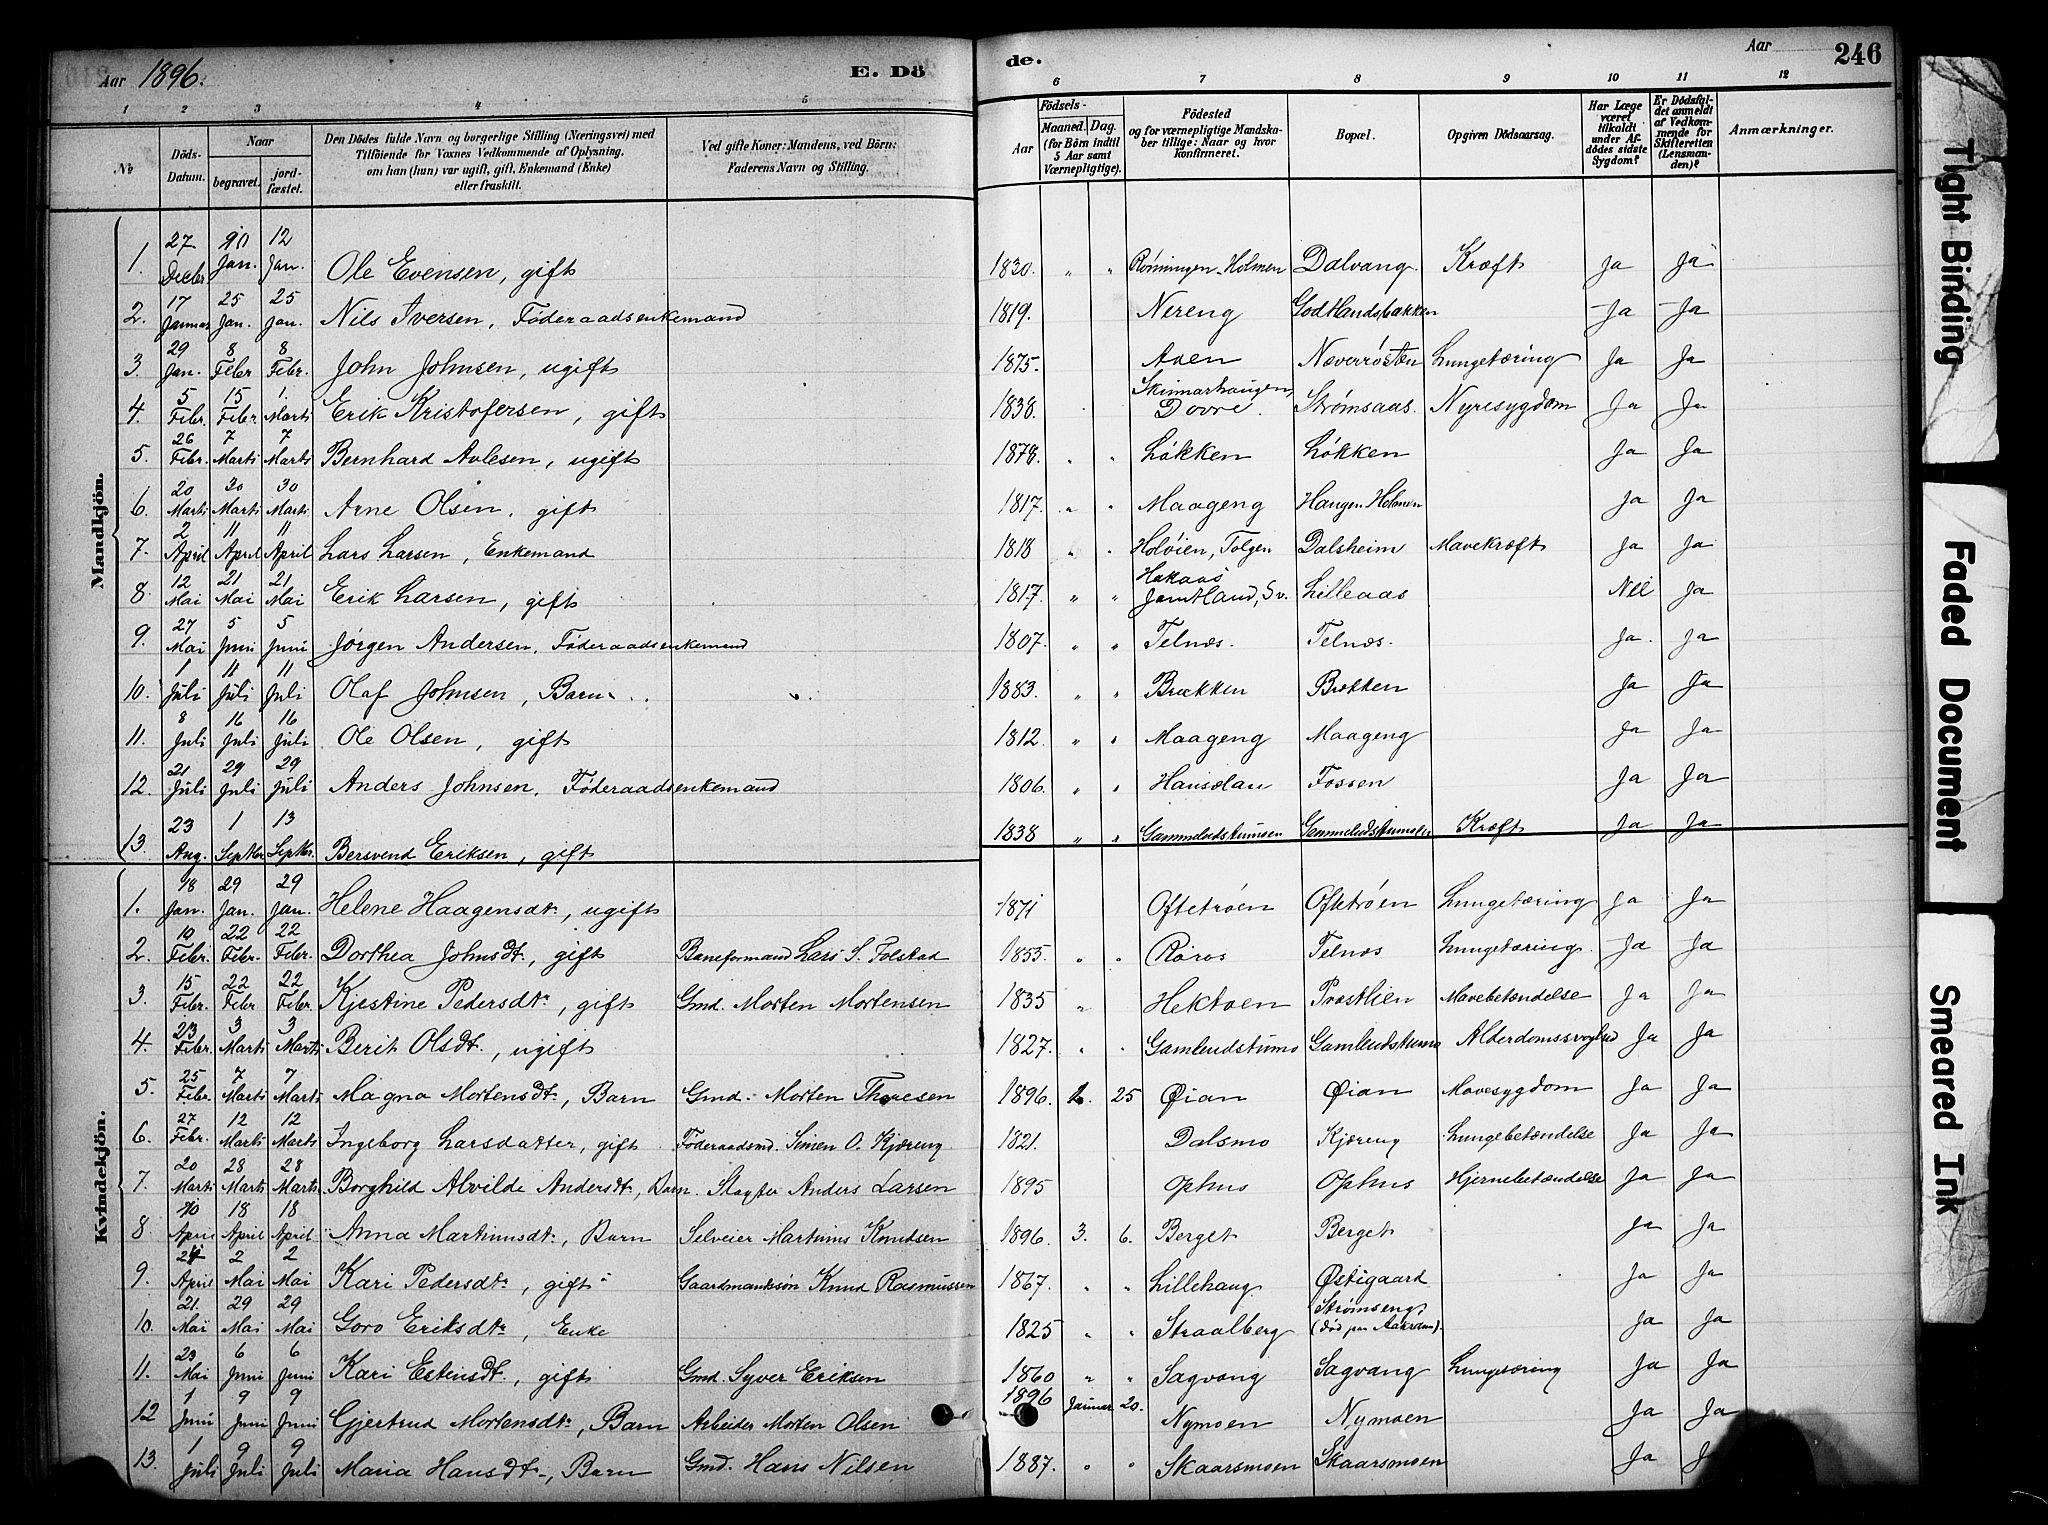 Aar 1896. E. Dö
de. Aar 246
1 2 3 4 5 6 7 8 9 10 11 12
№ Döds-Datum. Naar begravet. jordfæstet. Den Dödes fulde Navn og borgerlige Stilling (Næringsvei) med Tilföiende for Voxnes Vedkommende af Oplysning, om han (hun) var ugift, gift, Enkemand (Enke) eller fraskilt. Ved gifte Koner: Mandens, ved Börn: Faderens Navn og Stilling. Födsels- Aar Maaned. Dag. (for Börn indtil 5 Aar samt Værnepligtige). Födested og for værnepligtige Mandskaber tillige: Naar og hvor konfirmeret. Bopæl. Opgiven Dödsaarsag. Har Læge været tilkaldt under Afdödes sidste Sygdom? Er Dödsfaldet anmeldt af Vedkommende for Skifteretten (Lensmanden)? Anmærkninger.
Mandkjön.
1. 27 Decbr 10 Jan. 12 Jan. Ole Evensen, gift 1830. " " Rønningen Holmen Dalvang. Kræft Ja Ja
2. 17 Januar 25 Jan. 25 Jan. Nils Iversen, Føderaadsenkemand 1819. Nereng Godtlandsbakken Ja Ja
3. 29 Jan. 8 Febr 8 Febr. John Johnsen, ugift 1875. Aaen Neverrøsten Lungetæring Ja Ja
4. 5 Febr. 15 Febr. 1. Marts Erik Kristofersen, gift 1838. Skinnarhaugen, Dovre. Strømsaas. Nyresygdom Ja Ja
5. 26 Febr. 7 Marts 7 Marts Bernhard Avlesen, ugift 1878. " " Løkken Løkken Ja Ja
6. 20 Marts 30 Marts 30 Marts Arne Olsen, gift 1817. " " Maageng Haugen Holmen Ja Ja
7. 2 April 11 April 11 April Lars Larsen, Enkemand 1818 " " Holøien, Tolgen Dalsheim Mavekræft Ja Ja
8. 12 Mai 21 Mai 21 Mai Erik Larsen, gift 1817. " " Hakaas Jamtland, Sv. Lilleaas Nei Ja
9. 27 Mai 5 Juni 5 Juni Jørgen Andersen, Føderaadsenkemand 1807. " " Telnæs. Telnæs. Ja. Ja
10. 1 Juli 11 Juli 11 Juli Olaf Johnsen, Barn 1883. " " Brekken Brekken Ja Ja
11. 8 Juli 16 Juli 16 Juli Ole Olsen, gift 1812. " " Maageng Maageng Ja Ja
12. 21 Juli 29 Juli 29 Juli Anders Johnsen, Føderaadsenkemand 1806. " " Fossen Ja Ja
13. 23 Aug. 1 Septbr 13 Septbr. Bersvend Eriksen, gift 1838 " " Kræft Ja Ja
Kvindekjön.
1. 18 Jan. 29 Jan. 29 Jan. Helene Haagensdt., ugift 1871 Oftetrøen Oftetrøen Lungetæring Ja Ja
2. 10 Febr. 22 Febr. 22 Febr. Dorthea Johnsdt., gift Baneformand Lars S. Tolstad 1855. " " Røros Telnæs Lungetæring. Ja Ja
3. 15 Febr. 22 Febr 22 Febr. Kjestine Pedersdtr, gift Gmd. Morten Mortensen 1835 " Hektoen Præstlien Mavebetændelse Ja Ja
4. 23 Febr. 3 Marts 3 Marts Berit Olsdt., ugift 1827. " " Gamleudstumo Gamleudstumo Ja Ja
5. 25 Febr. 7 Marts 7 Marts Magna Mortensdt., Barn Gmd. Morten Thoresen 1896. 25 Øian Øian Mavesygdom Ja Ja
6. 27 Febr. 12 Marts 12 Marts Ingeborg Larsdatter, gift Føderaadsmd. Simen O. Kjæreng 1821. Dalsmo Kjæreng Lungebetændelse Ja Ja
7. 20 Marts 28 Marts 28 Marts Borghild Alvilde Andersdt, Barn Slagter Anders Larsen 1895 Ophus Ophus Hjernebetændelse Ja Ja
8. 10 April 18 April 18 April Anna Martinusdt., Barn Selveier Martinus Knudsen 1896. 3. 6. Berget Berget Ja Ja
9. April 2 Mai 2 Mai Kari Pedersdtr, gift Gaardmandssøn Knud Rasmussen 1867. " " Lillehaug Østigaard Ja Ja
10. 21. Mai 29 Mai 29 Mai Goro Eriksdtr, Enke 1825 " " Straalberg Strømseng. (død paa ) Ja Ja
11. 23 Mai 6 Juni 6 Juni Kari Estensdt., gift Gmd. Syver Eriksen 1860 " " Sagvang Sagvang Lungetæring Ja Ja
12 1 Juni 9 Juni 9 Juni Gjertrud Mortensdt., Barn Arbeider Morten Olsen 1896 Januar 20. Nymoen Nymoen Ja Ja
13. 1 Juli 9 Juli 9 Juli Maria Hansdt., Barn Gmd. Hans Nilsen 1887. " " Skaarsmoen Skaarsmoen Ja Ja
Tight Binding
Faded Document
Smeared Ink